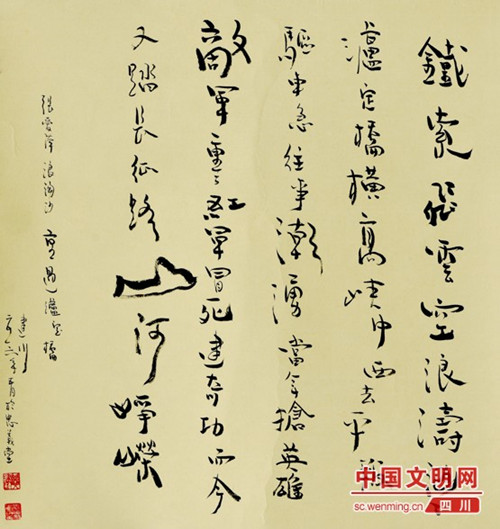 鐵索飛雲空浪濤洶
瀘定橋橫高峽中西去平
驅車急往事潮湧當年搶英雄
敵軍重々紅軍冒死建奇功而今
又踏長征路山河崢嶸
張愛萍浪淘沙過瀘定橋
建川
中国文明网
sc.wenming.cn 四川